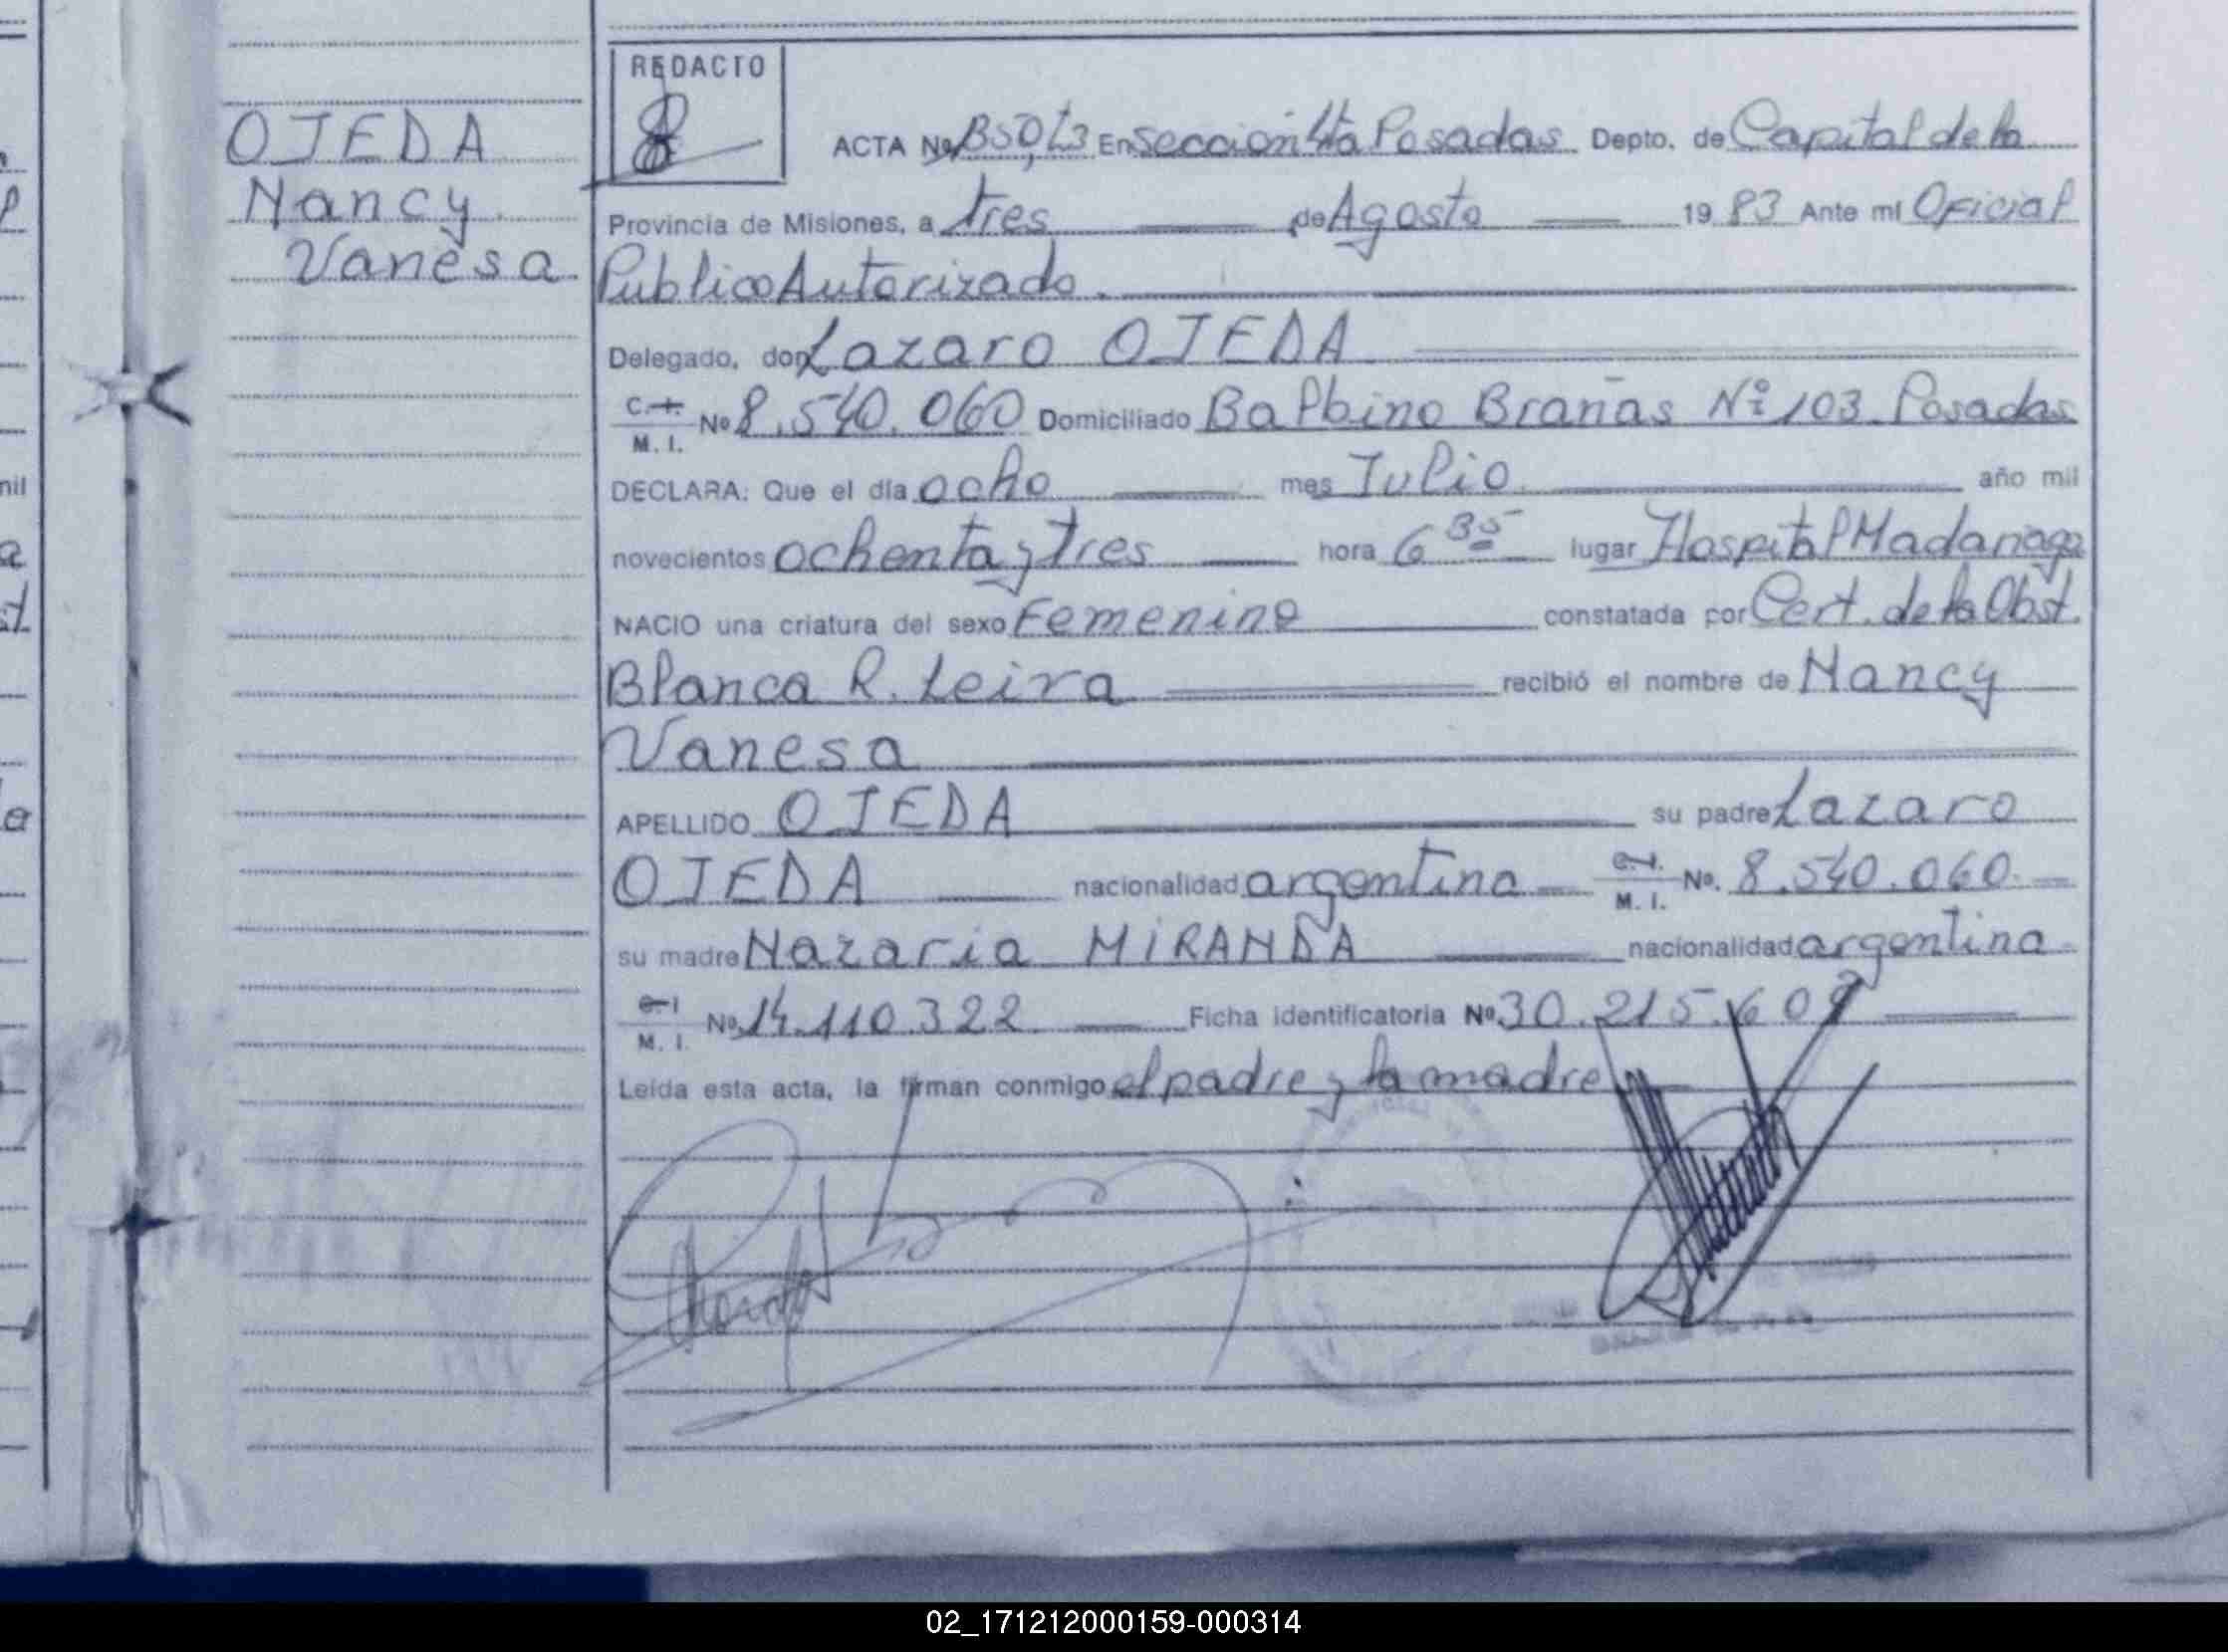 OJEDA
Nancy
Vanesa
REDACTO
ACTA Nº En Sección 4ta Posadas Depto. de Capital de la
Provincia de Misiones, a tres de Agosto 1983 Ante mi Oficial
Publico Autorizado.
Delegado, don Lazaro OJEDA
C. I. M. I. Nº 8.540.060 Domiciliado Balbino Brañas Nº 103 Posadas
DECLARA: Que el día ocho mes Julio año mil
novecientos ochenta y tres hora 6 35 lugar Hospital Madariaga
NACIO una criatura del sexo Femenino constatada por Cert. de la Obst.
Blanca R. Leiva recibió el nombre de Nancy
Vanesa
APELLIDO OJEDA su padre Lazaro
OJEDA nacionalidad argentina C. I. M. I. Nº. 8.540.060
su madre Nazaria MIRANDA nacionalidad argentina
C. I. M. I. Nº 14.110.322 Ficha identificatoria Nº 30.215.60
Leída esta acta, la firman conmigo el padre y la madre
02_171212000159-000314